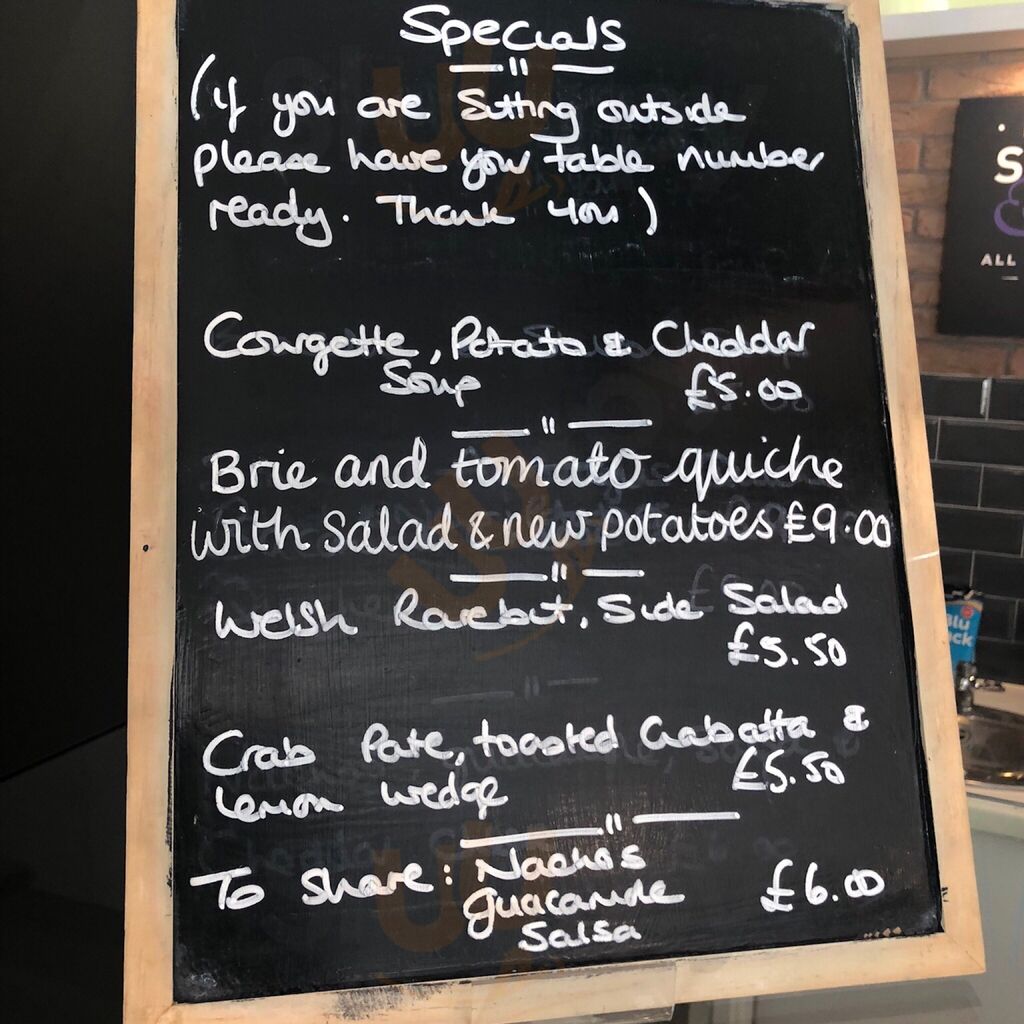 Specials
(if you are Sitting outside
please have your table number
ready. Thank you)
Courgette, Potato & Cheddar
Soup £5.00
Brie and tomato quiche
with salad & new potatoes £9.00
Welsh Rarebit, Side Salad
£5.50
Crab Pate, toasted Ciabatta &
Lemon wedge £5.50
To Share: Nacho's £6.00
guacamole
Salsa
S
ALL
Blu
ack